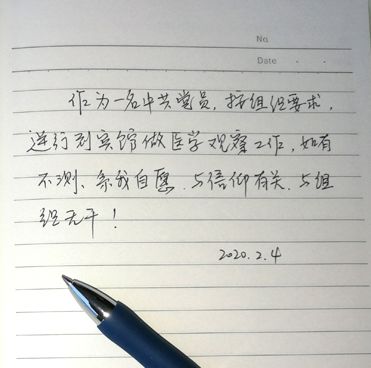 No
Date . .
作为一名中共党员,按组织要求,
进行到宾馆做医学观察工作,如有
不测、系我自愿.与信仰有关.与组
织无干!
2020.2.4